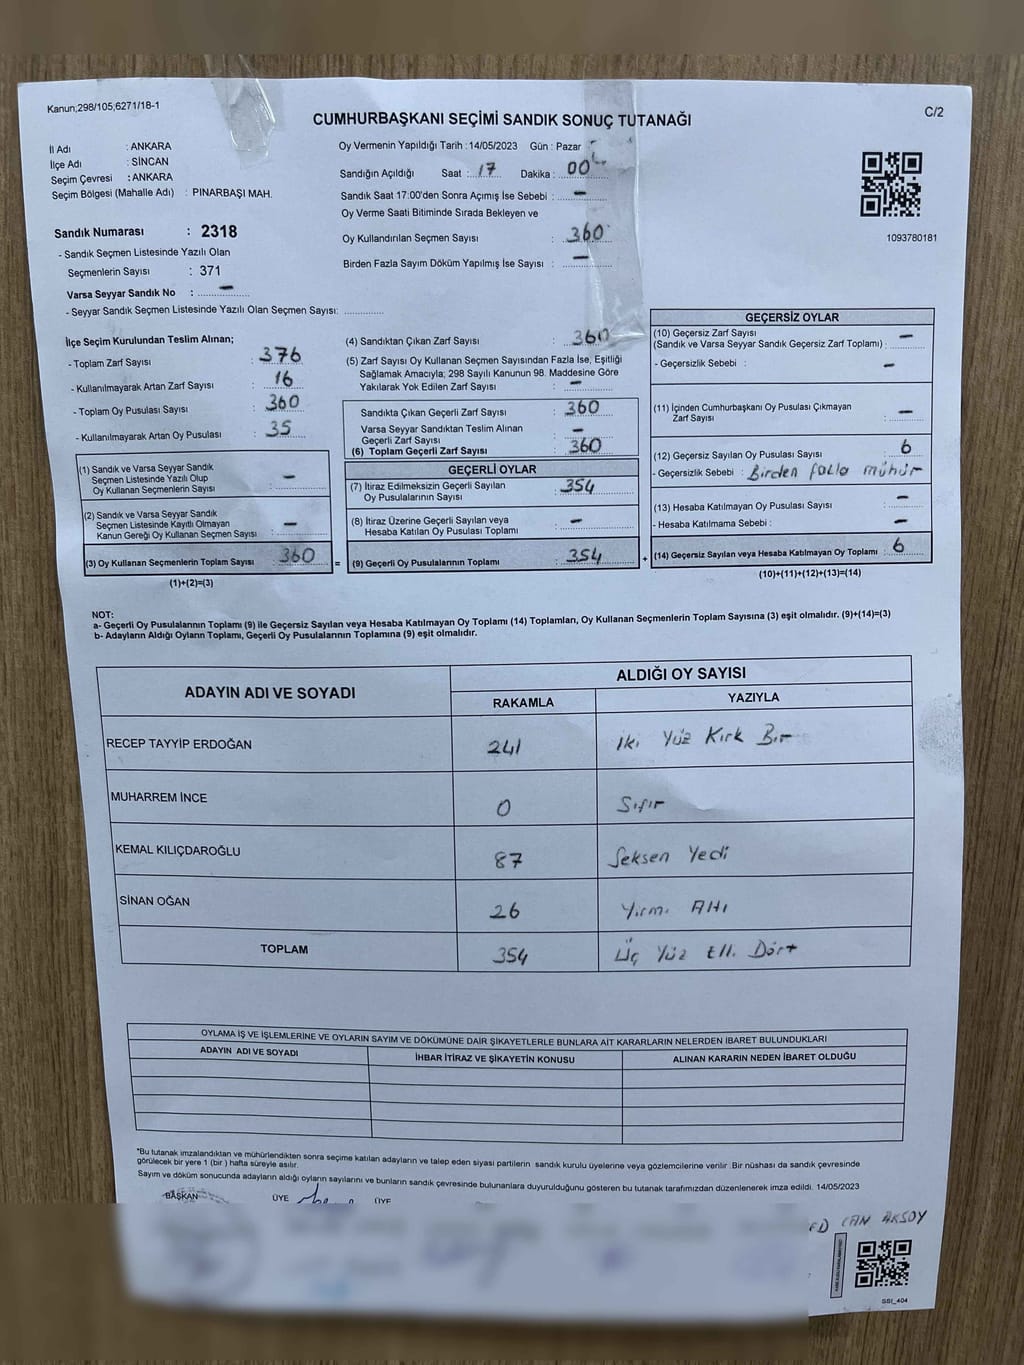 Kanun;298/105;6271/18-1
C/2
CUMHURBAŞKANI SEÇİMİ SANDIK SONUÇ TUTANAĞI
İl Adı : ANKARA
İlçe Adı : SİNCAN
Seçim Çevresi : ANKARA
Seçim Bölgesi (Mahalle Adı) : PINARBAŞI MAH.
Sandık Numarası : 2318
- Sandık Seçmen Listesinde Yazılı Olan
Seçmenlerin Sayısı : 371
Varsa Seyyar Sandık No : –
- Seyyar Sandık Seçmen Listesinde Yazılı Olan Seçmen Sayısı: ............
Oy Vermenin Yapıldığı Tarih : 14/05/2023 Gün : Pazar
Sandığın Açıldığı Saat : 17 Dakika : 00
Sandık Saat 17:00'den Sonra Açımış İse Sebebi : –
Oy Verme Saati Bitiminde Sırada Bekleyen ve
Oy Kullandırılan Seçmen Sayısı : 360
Birden Fazla Sayım Döküm Yapılmış İse Sayısı : –
1093780181
İlçe Seçim Kurulundan Teslim Alınan;
- Toplam Zarf Sayısı : 376
- Kullanılmayarak Artan Zarf Sayısı : 16
- Toplam Oy Pusulası Sayısı : 360
- Kullanılmayarak Artan Oy Pusulası : 35
(1) Sandık ve Varsa Seyyar Sandık
Seçmen Listesinde Yazılı Olup
Oy Kullanan Seçmenlerin Sayısı : –
(2) Sandık ve Varsa Seyyar Sandık
Seçmen Listesinde Kayıtlı Olmayan
Kanun Gereği Oy Kullanan Seçmen Sayısı : –
(3) Oy Kullanan Seçmenlerin Toplam Sayısı : 360
(1)+(2)=(3)
=
(4) Sandıktan Çıkan Zarf Sayısı : 360
(5) Zarf Sayısı Oy Kullanan Seçmen Sayısından Fazla İse, Eşitliği
Sağlamak Amacıyla; 298 Sayılı Kanunun 98. Maddesine Göre
Yakılarak Yok Edilen Zarf Sayısı : –
Sandıkta Çıkan Geçerli Zarf Sayısı : 360
Varsa Seyyar Sandıktan Teslim Alınan
Geçerli Zarf Sayısı : –
(6) Toplam Geçerli Zarf Sayısı : 360
GEÇERLİ OYLAR
(7) İtiraz Edilmeksizin Geçerli Sayılan
Oy Pusulalarının Sayısı : 354
(8) İtiraz Üzerine Geçerli Sayılan veya
Hesaba Katılan Oy Pusulası Toplamı : –
(9) Geçerli Oy Pusulalarının Toplamı : 354
+
GEÇERSİZ OYLAR
(10) Geçersiz Zarf Sayısı
(Sandık ve Varsa Seyyar Sandık Geçersiz Zarf Toplamı) : –
- Geçersizlik Sebebi : –
(11) İçinden Cumhurbaşkanı Oy Pusulası Çıkmayan
Zarf Sayısı : –
(12) Geçersiz Sayılan Oy Pusulası Sayısı : 6
- Geçersizlik Sebebi : Birden fazla mühür
(13) Hesaba Katılmayan Oy Pusulası Sayısı : –
- Hesaba Katılmama Sebebi : –
(14) Geçersiz Sayılan veya Hesaba Katılmayan Oy Toplamı : 6
(10)+(11)+(12)+(13)=(14)
NOT:
a- Geçerli Oy Pusulalarının Toplamı (9) ile Geçersiz Sayılan veya Hesaba Katılmayan Oy Toplamı (14) Toplamları, Oy Kullanan Seçmenlerin Toplam Sayısına (3) eşit olmalıdır. (9)+(14)=(3)
b- Adayların Aldığı Oyların Toplamı, Geçerli Oy Pusulalarının Toplamına (9) eşit olmalıdır.
ADAYIN ADI VE SOYADI
ALDIĞI OY SAYISI
RAKAMLA YAZIYLA
RECEP TAYYİP ERDOĞAN 241 İki Yüz Kırk Bir
MUHARREM İNCE 0 Sıfır
KEMAL KILIÇDAROĞLU 87 Seksen Yedi
SİNAN OĞAN 26 Yirmi Altı
TOPLAM 354 Üç Yüz Elli Dört
OYLAMA İŞ VE İŞLEMLERİNE VE OYLARIN SAYIM VE DÖKÜMÜNE DAİR ŞİKAYETLERLE BUNLARA AİT KARARLARIN NELERDEN İBARET BULUNDUKLARI
ADAYIN ADI VE SOYADI İHBAR İTİRAZ VE ŞİKAYETİN KONUSU ALINAN KARARIN NEDEN İBARET OLDUĞU
*Bu tutanak imzalandıktan ve mühürlendikten sonra seçime katılan adayların ve talep eden siyasi partilerin sandık kurulu üyelerine veya gözlemcilerine verilir. Bir nüshası da sandık çevresinde
görülecek bir yere 1 (bir ) hafta süreyle asılır.
Sayım ve döküm sonucunda adayların aldığı oyların sayılarını ve bunların sandık çevresinde bulunanlara duyurulduğunu gösteren bu tutanak tarafımızdan düzenlenerek imza edildi. 14/05/2023
BAŞKAN ÜYE ÜYE
CAN AKSOY
SSI_404